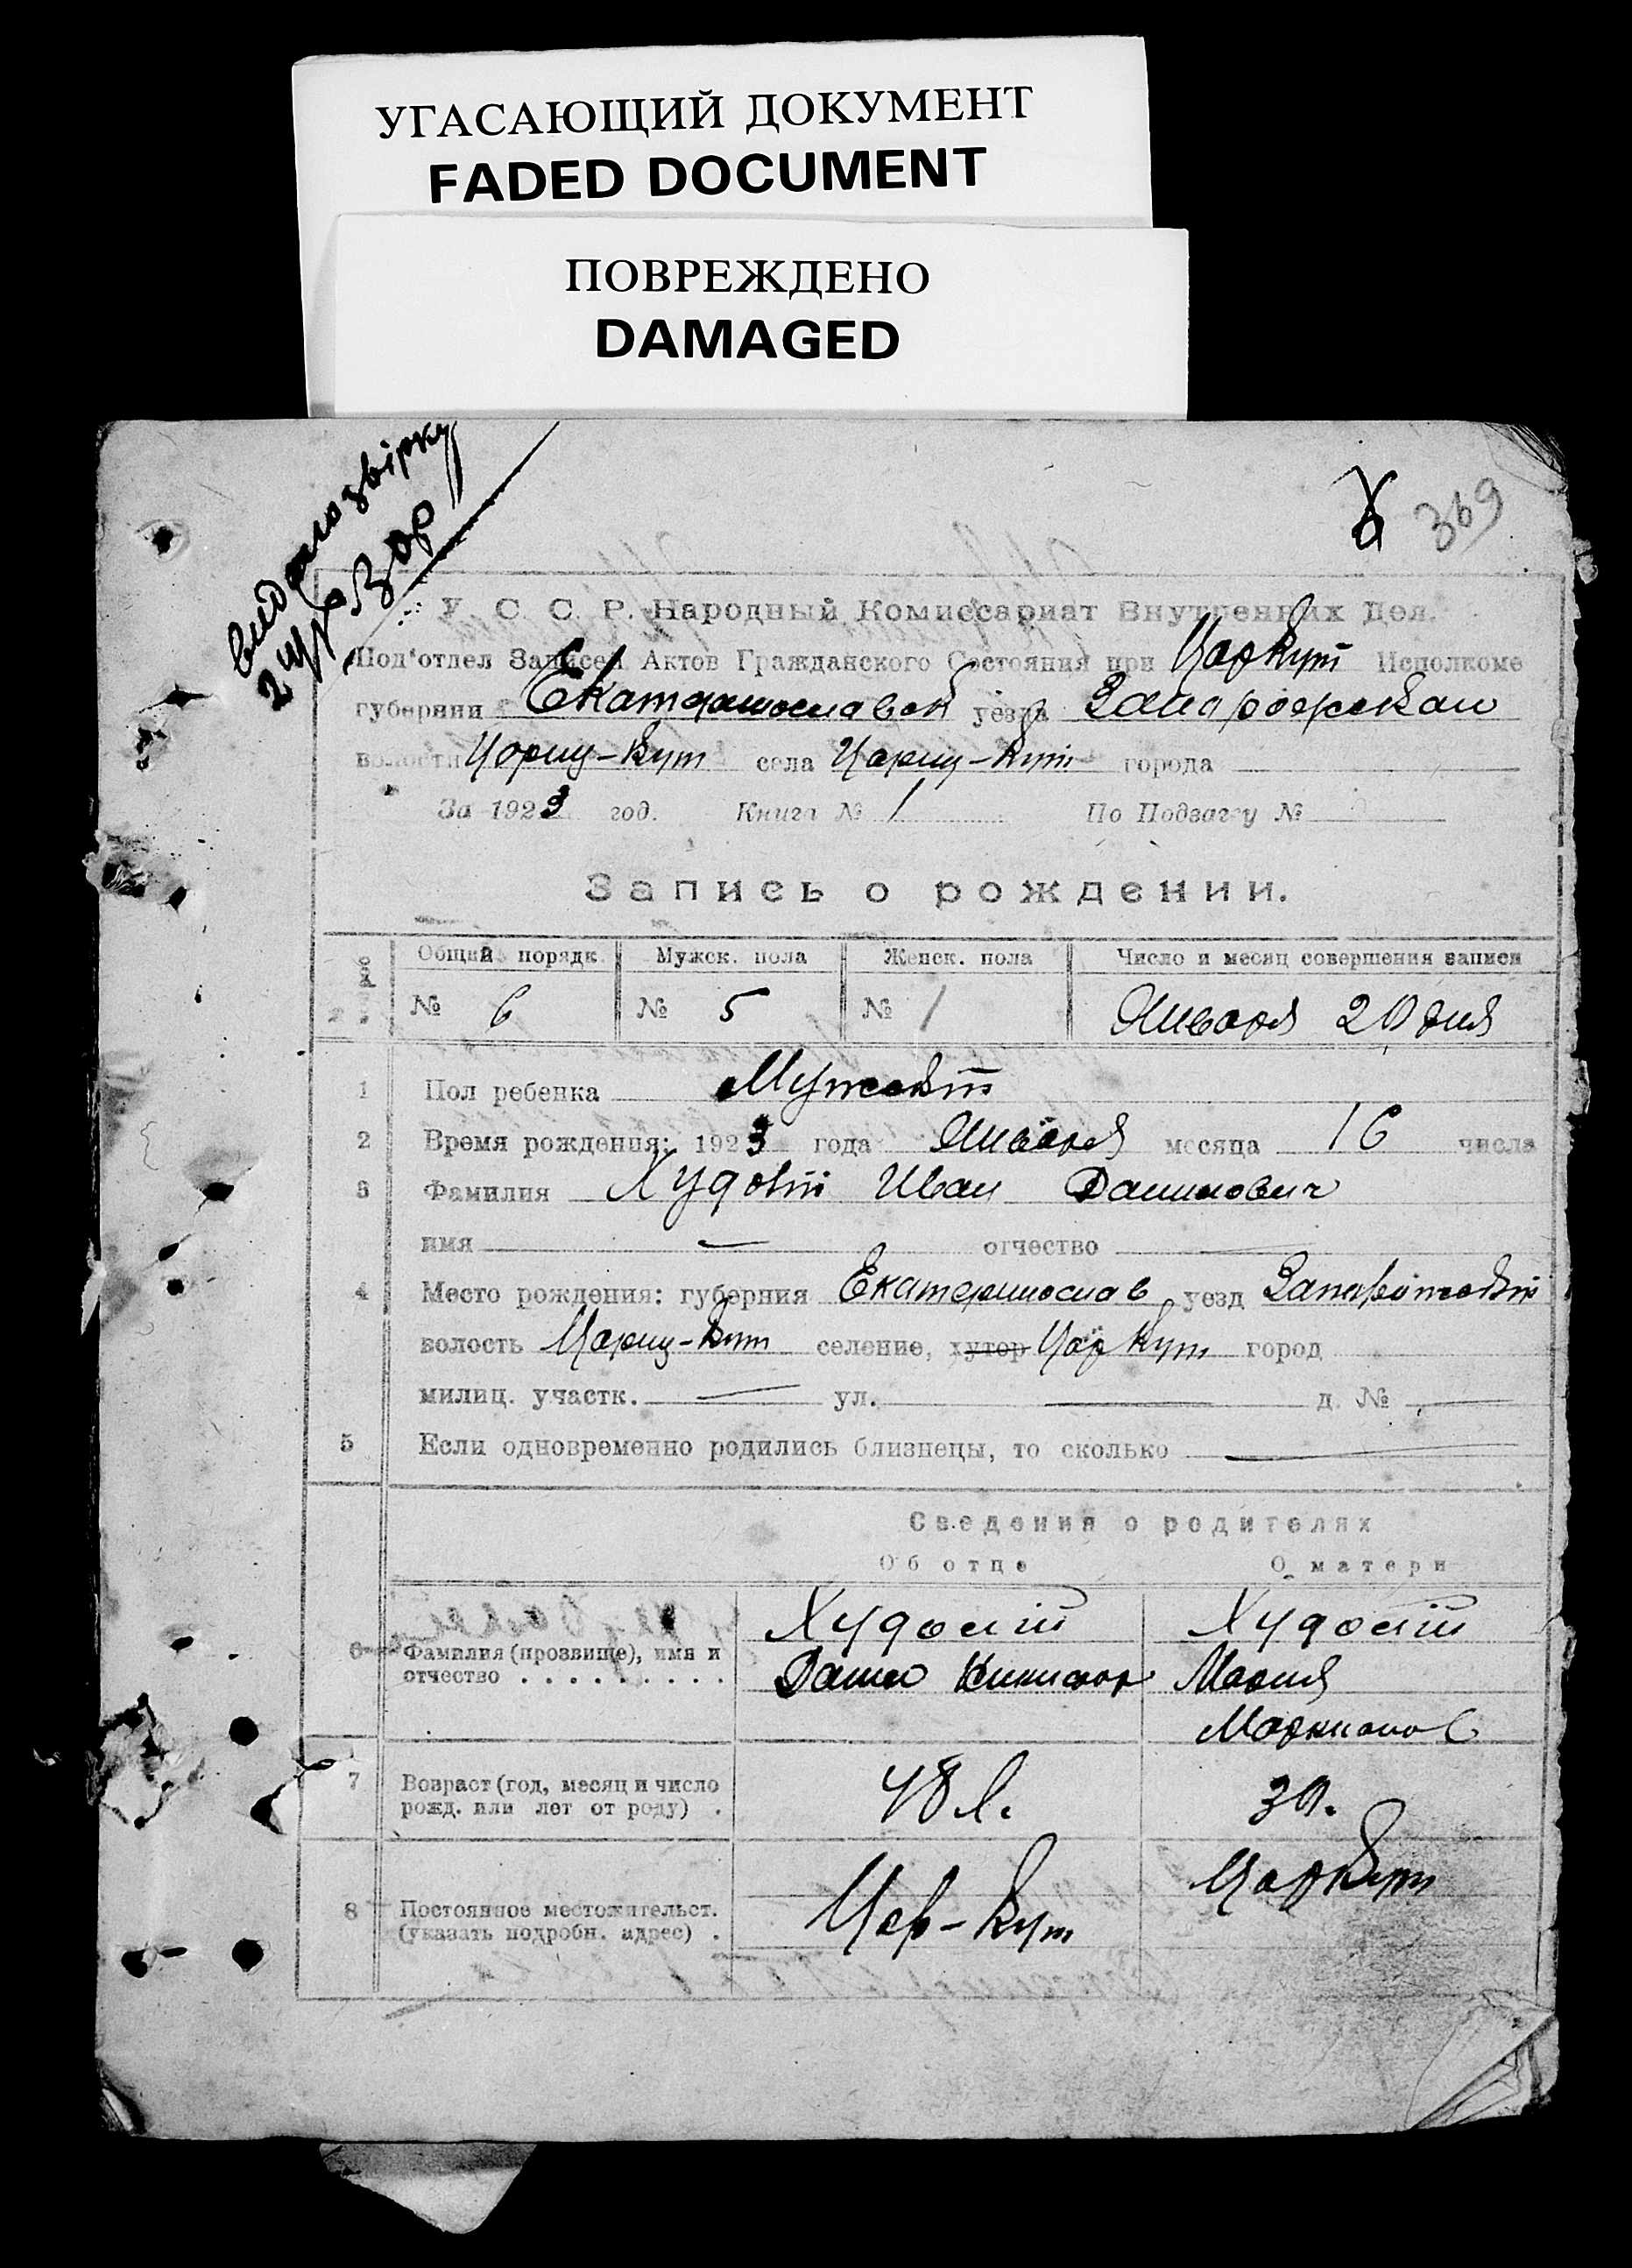 УГАСАЮЩИЙ ДОКУМЕНТ
FADED DOCUMENT
ПОВРЕЖДЕНО
DAMAGED
видано звірку
369
У. С. С. Р. Народный Комиссариат Внутренних Дел.
Под'отдел Записей Актов Гражданского Состояния при Царкут Исполкоме
губернии Екатеринославск уезда Запорожскаи
волости Цариц-Кут села Цариц-Кут города
За 1923 год. Книга № 1 По Подзагсу №
Запись о рождении.
Общий порядк. Мужск. пола Женск. пола Число и месяц совершения записи
№ 6 № 5 № 1 Января 20 дня
1 Пол ребенка Мужской
2 Время рождения: 1923 года Января месяца 16 числа
3 Фамилия Худой Иван Данилович
имя — отчество
4 Место рождения: губерния Екатеринослав уезд Запорожской
волость Цариц-Кут селение, хутор Цар Кут город
милиц. участк. — ул. — д. № —
5 Если одновременно родились близнецы, то сколько —
Сведения о родителях
Об отце О матери
6 Фамилия (прозвище), имя и отчество . . . . . . . . .
Худоий Худоий
Данил Мария
Маркианов
7 Возраст (год, месяц и число рожд. или лет от роду) . 48 л. 30.
8 Постоянное местожительст. (указать подробн. адрес) . Цар-Кут Царкут